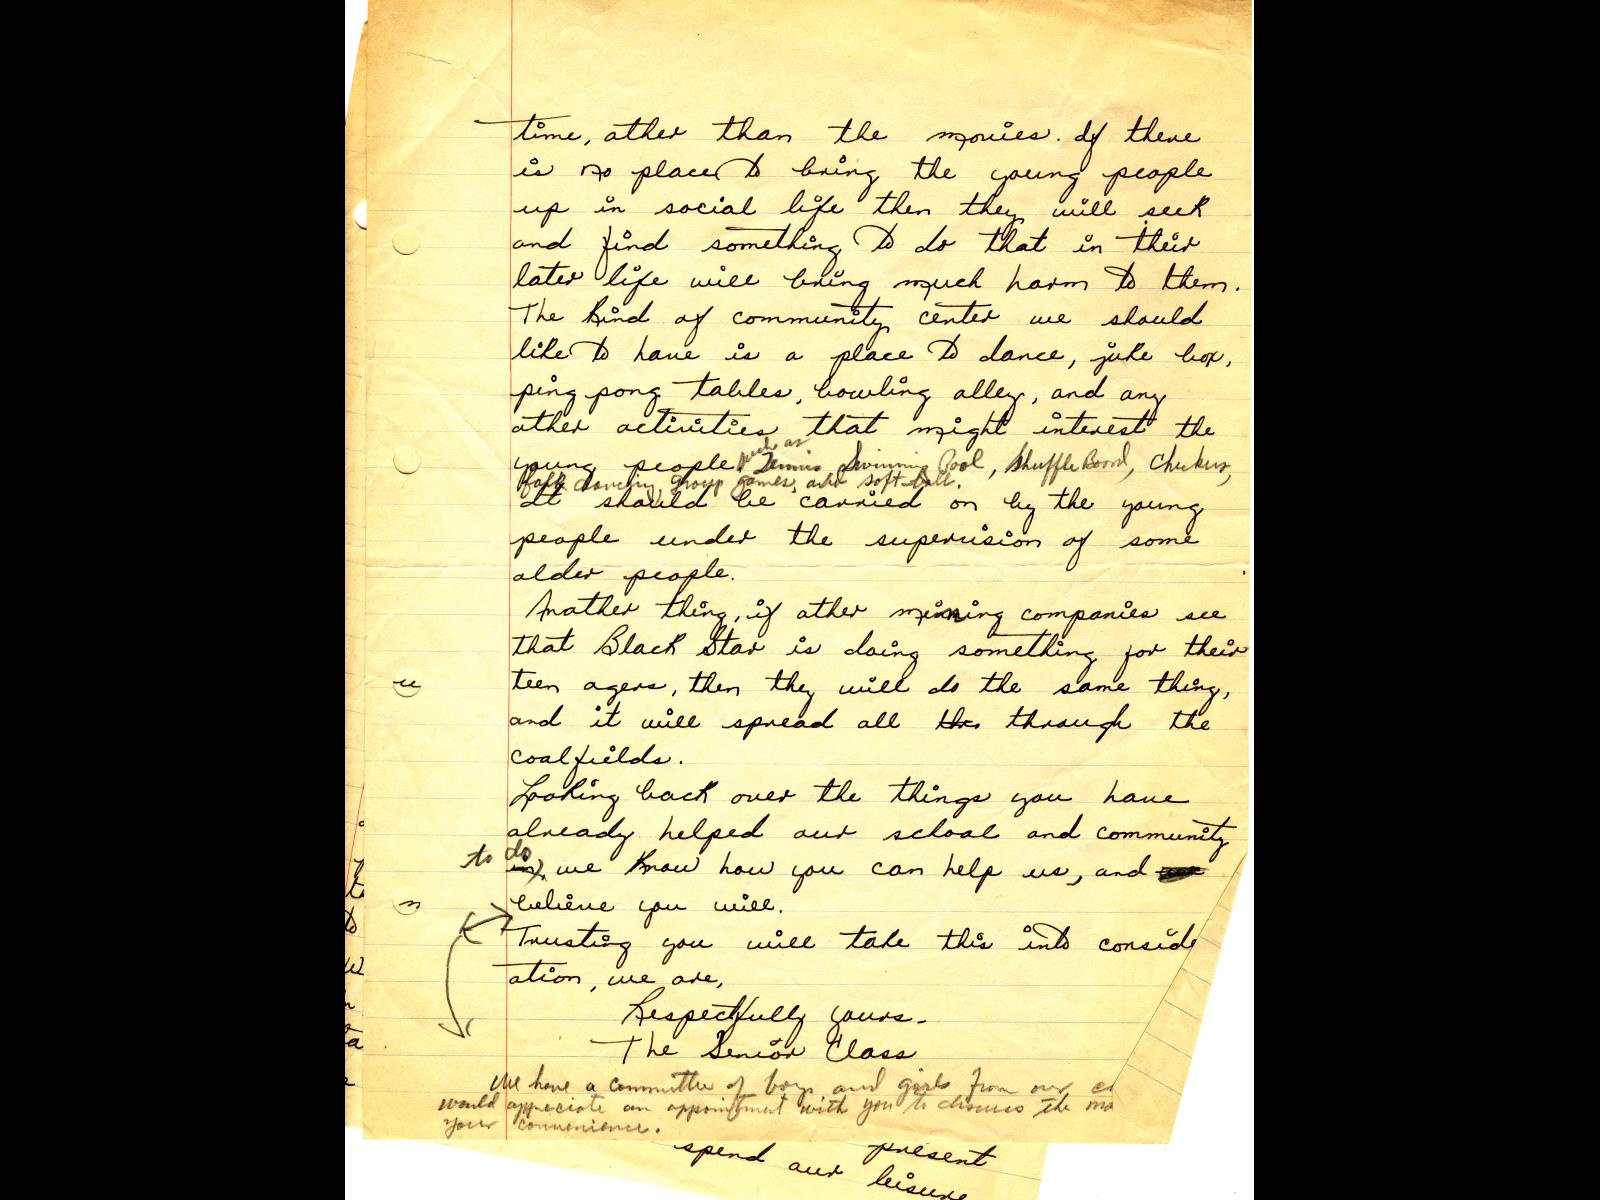 time, other than the movies. If there
is no place to bring the young people
up in social life then they will seek
and find something to do that in their
later life will bring much harm to them.
The kind of community center we should
like to have is a place to dance, juke box,
ping pong tables, bowling alley, and any
other activities that might interest the
such as
young people. Tennis, Swimming Pool, Shuffle Board, Checkers,
folk dancing, group games, and soft ball.
It should be carried on by the young
people under the supervision of some
older people.
Another thing, if other mining companies see
that Black Star is doing something for their
teen agers, then they will do the same thing,
and it will spread all thro through the
coalfields.
Looking back over the things you have
already helped our school and community
to do
in, we know how you can help us, and
believe you will.
Trusting you will take this into consid
ation, we are,
Respectfully yours-
The Senior Class
We have a committee of boys and girls from our
would appreciate an appointment with you to discuss the
your convenience.
present
spend our leisure